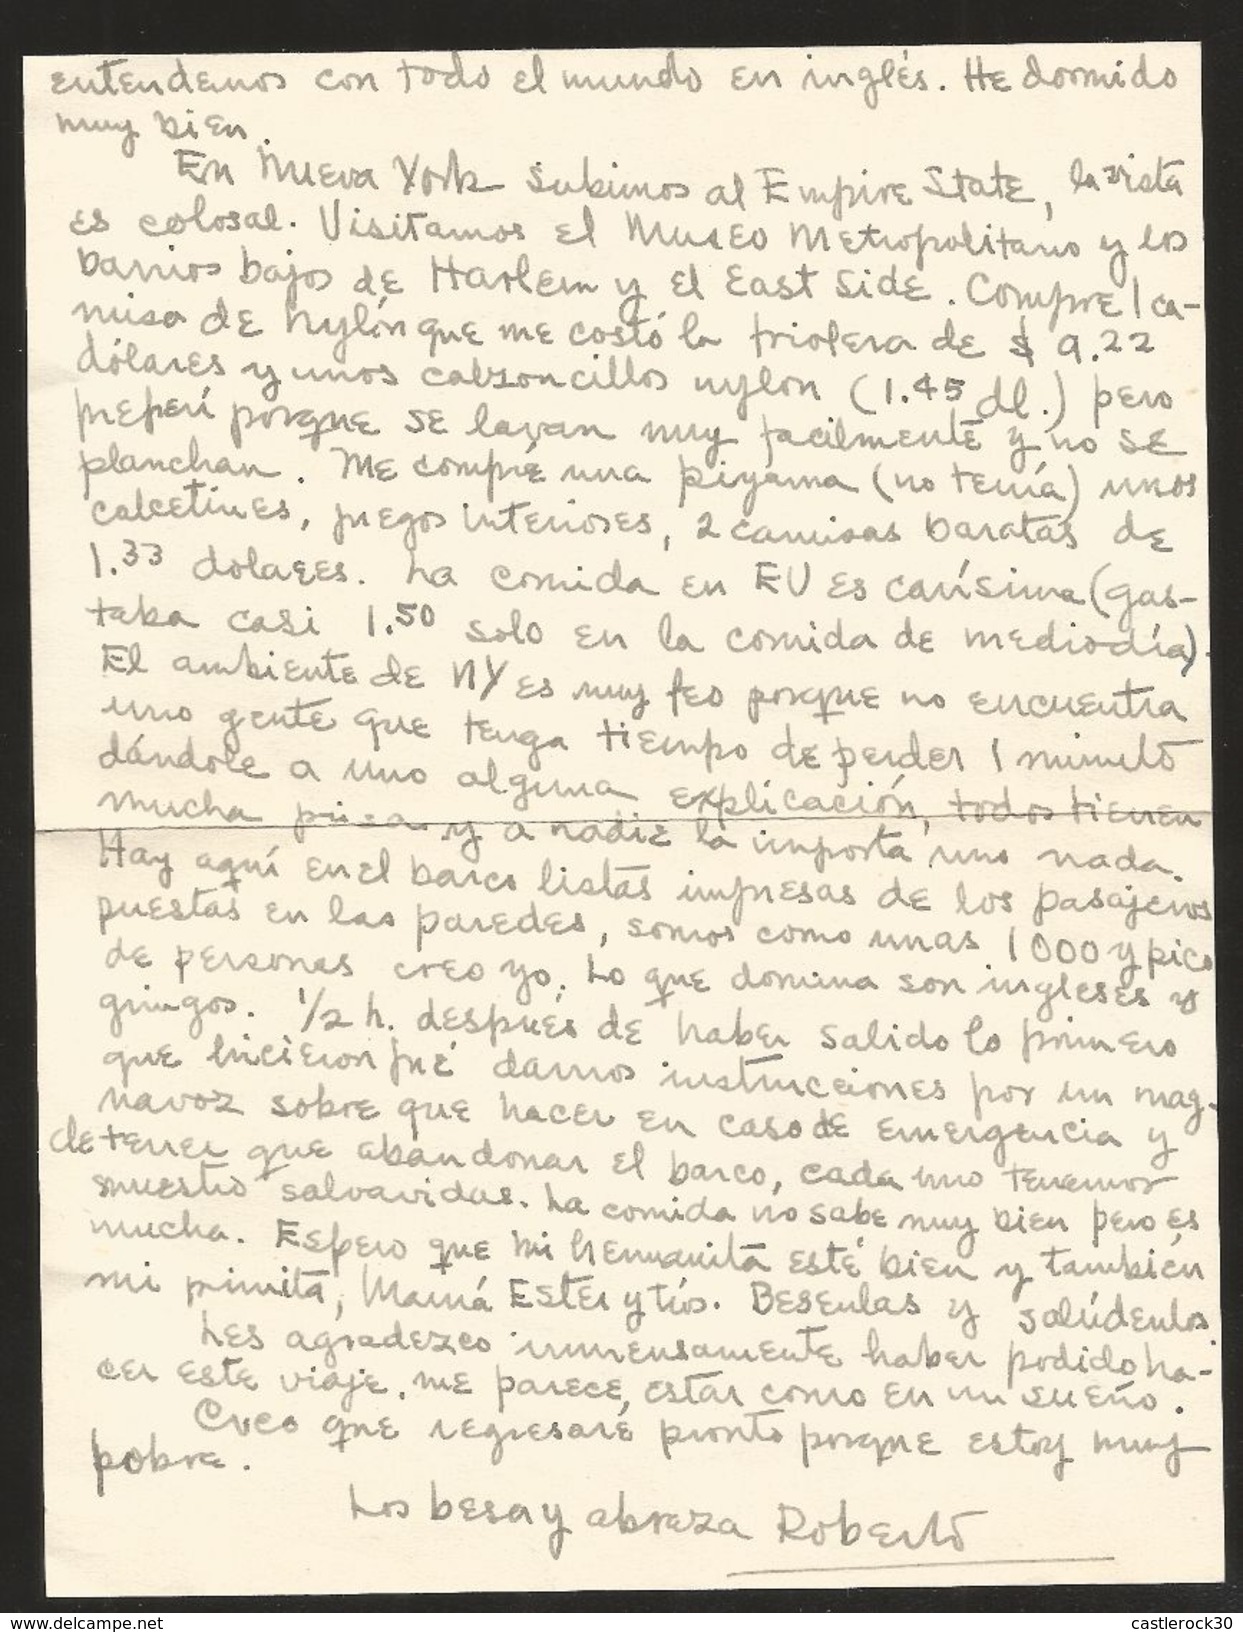 entendemos con todo el mundo en inglés. He dormido
muy bien.
En Nueva York subimos al Empire State, la vista
es colosal. Visitamos el Museo Metropolitano y los
barrios bajos de Harlem y el East Side. Compre 1 ca-
misa de nylín que me costó la friolera de $ 9.22
dólares y unos calzoncillos nylon (1.45 dl.) pero
preferí porque se lavan muy facilmente y no se
planchan. Me compré una piyama (no tenía) unos
calcetines, juegos interiores, 2 camisas baratas de
1.33 dolares. La comida en EU es carísima (gas-
taba casi 1.50 solo en la comida de mediodía).
El ambiente de NY es muy feo porque no encuentra
uno gente que tenga tiempo de perder 1 minuto
dándole a uno alguna explicación, todos tienen
mucha prisa y a nadie la importa uno nada.
Hay aquí en el barco listas impresas de los pasajeros
puestas en las paredes, somos como unas 1000 y pico
de personas creo yo. Lo que domina son ingleses y
gringos. 1/2 h. después de haber salido lo primero
que hicieron fué darnos instrucciones por un mag-
navoz sobre que hacer en caso de emergencia y
de tener que abandonar el barco, cada uno tenemos
nuestro salvavidas. La comida no sabe muy bien pero es
mucha. Espero que mi hermanita esté bien y también
mi primita, Mamá Ester y tíos. Besenlas y salúdenlos.
Les agradezco inmensamente haber podido ha-
cer este viaje, me parece, estar como en un sueño.
Creo que regresaré pronto porque estoy muy
pobre.
Los besa y abraza Roberto
www.delcampe.net
castlerock30